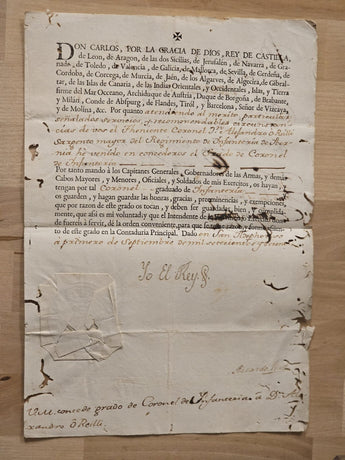 DON CARLOS, POR LA GRACIA DE DIOS, REY DE CASTILLA,
de Leon, de Aragon, de las dos Sicilias, de Jerusalén, de Navarra, de Gra-
nada, de Toledo, de Valencia, de Galicia, de Mallorca, de Sevilla, de Cerdeña, de
Cordoba, de Corcega, de Murcia, de Jaén, de los Algarves, de Algecira, de Gibral-
tar, de las Islas de Canaria, de las Indias Orientales, y Occidentales, Islas, y Tierra-
firme del Mar Oceano, Archiduque de Austria, Duque de Borgoña, de Brabante,
y Milán, Conde de Abspurg, de Flandes, Tiról, y Barcelona, Señor de Vizcaya,
y de Molina, &c. Por quanto atendiendo al merito particular
señalados servicios
cias de vos el Theniente Coronel Dn. Alejandro ô Reilli
Sargento mayor del Regimento de Infanteria de
he venido en concederos el Grado de Coronel
de Infanteria
Por tanto mando à los Capitanes Generales, Gobernadores de las Armas, y demás
Cabos Mayores, y Menores, Oficiales, y Soldados de mis Exercitos, os hayan,
tengan por tal Coronel graduado de Infanteria
os guarden, y hagan guardar las honras, gracias, preeminencias, y exempciones,
que por razon de este grado os tocan, y deben ser guardadas bien, y cumplida-
mente, que assi es mi voluntad; y que el Intendente de la
de fuereis à servir, dé la orden conveniente, para que se
de este grado en la Contaduría Principal. Dado en Sn.
à primero de Septiembre de mil setecientos y
Yo El Rey
V. M. concede grado de Coronel de Infanteria à Dn. A
xandro ô Reilli.